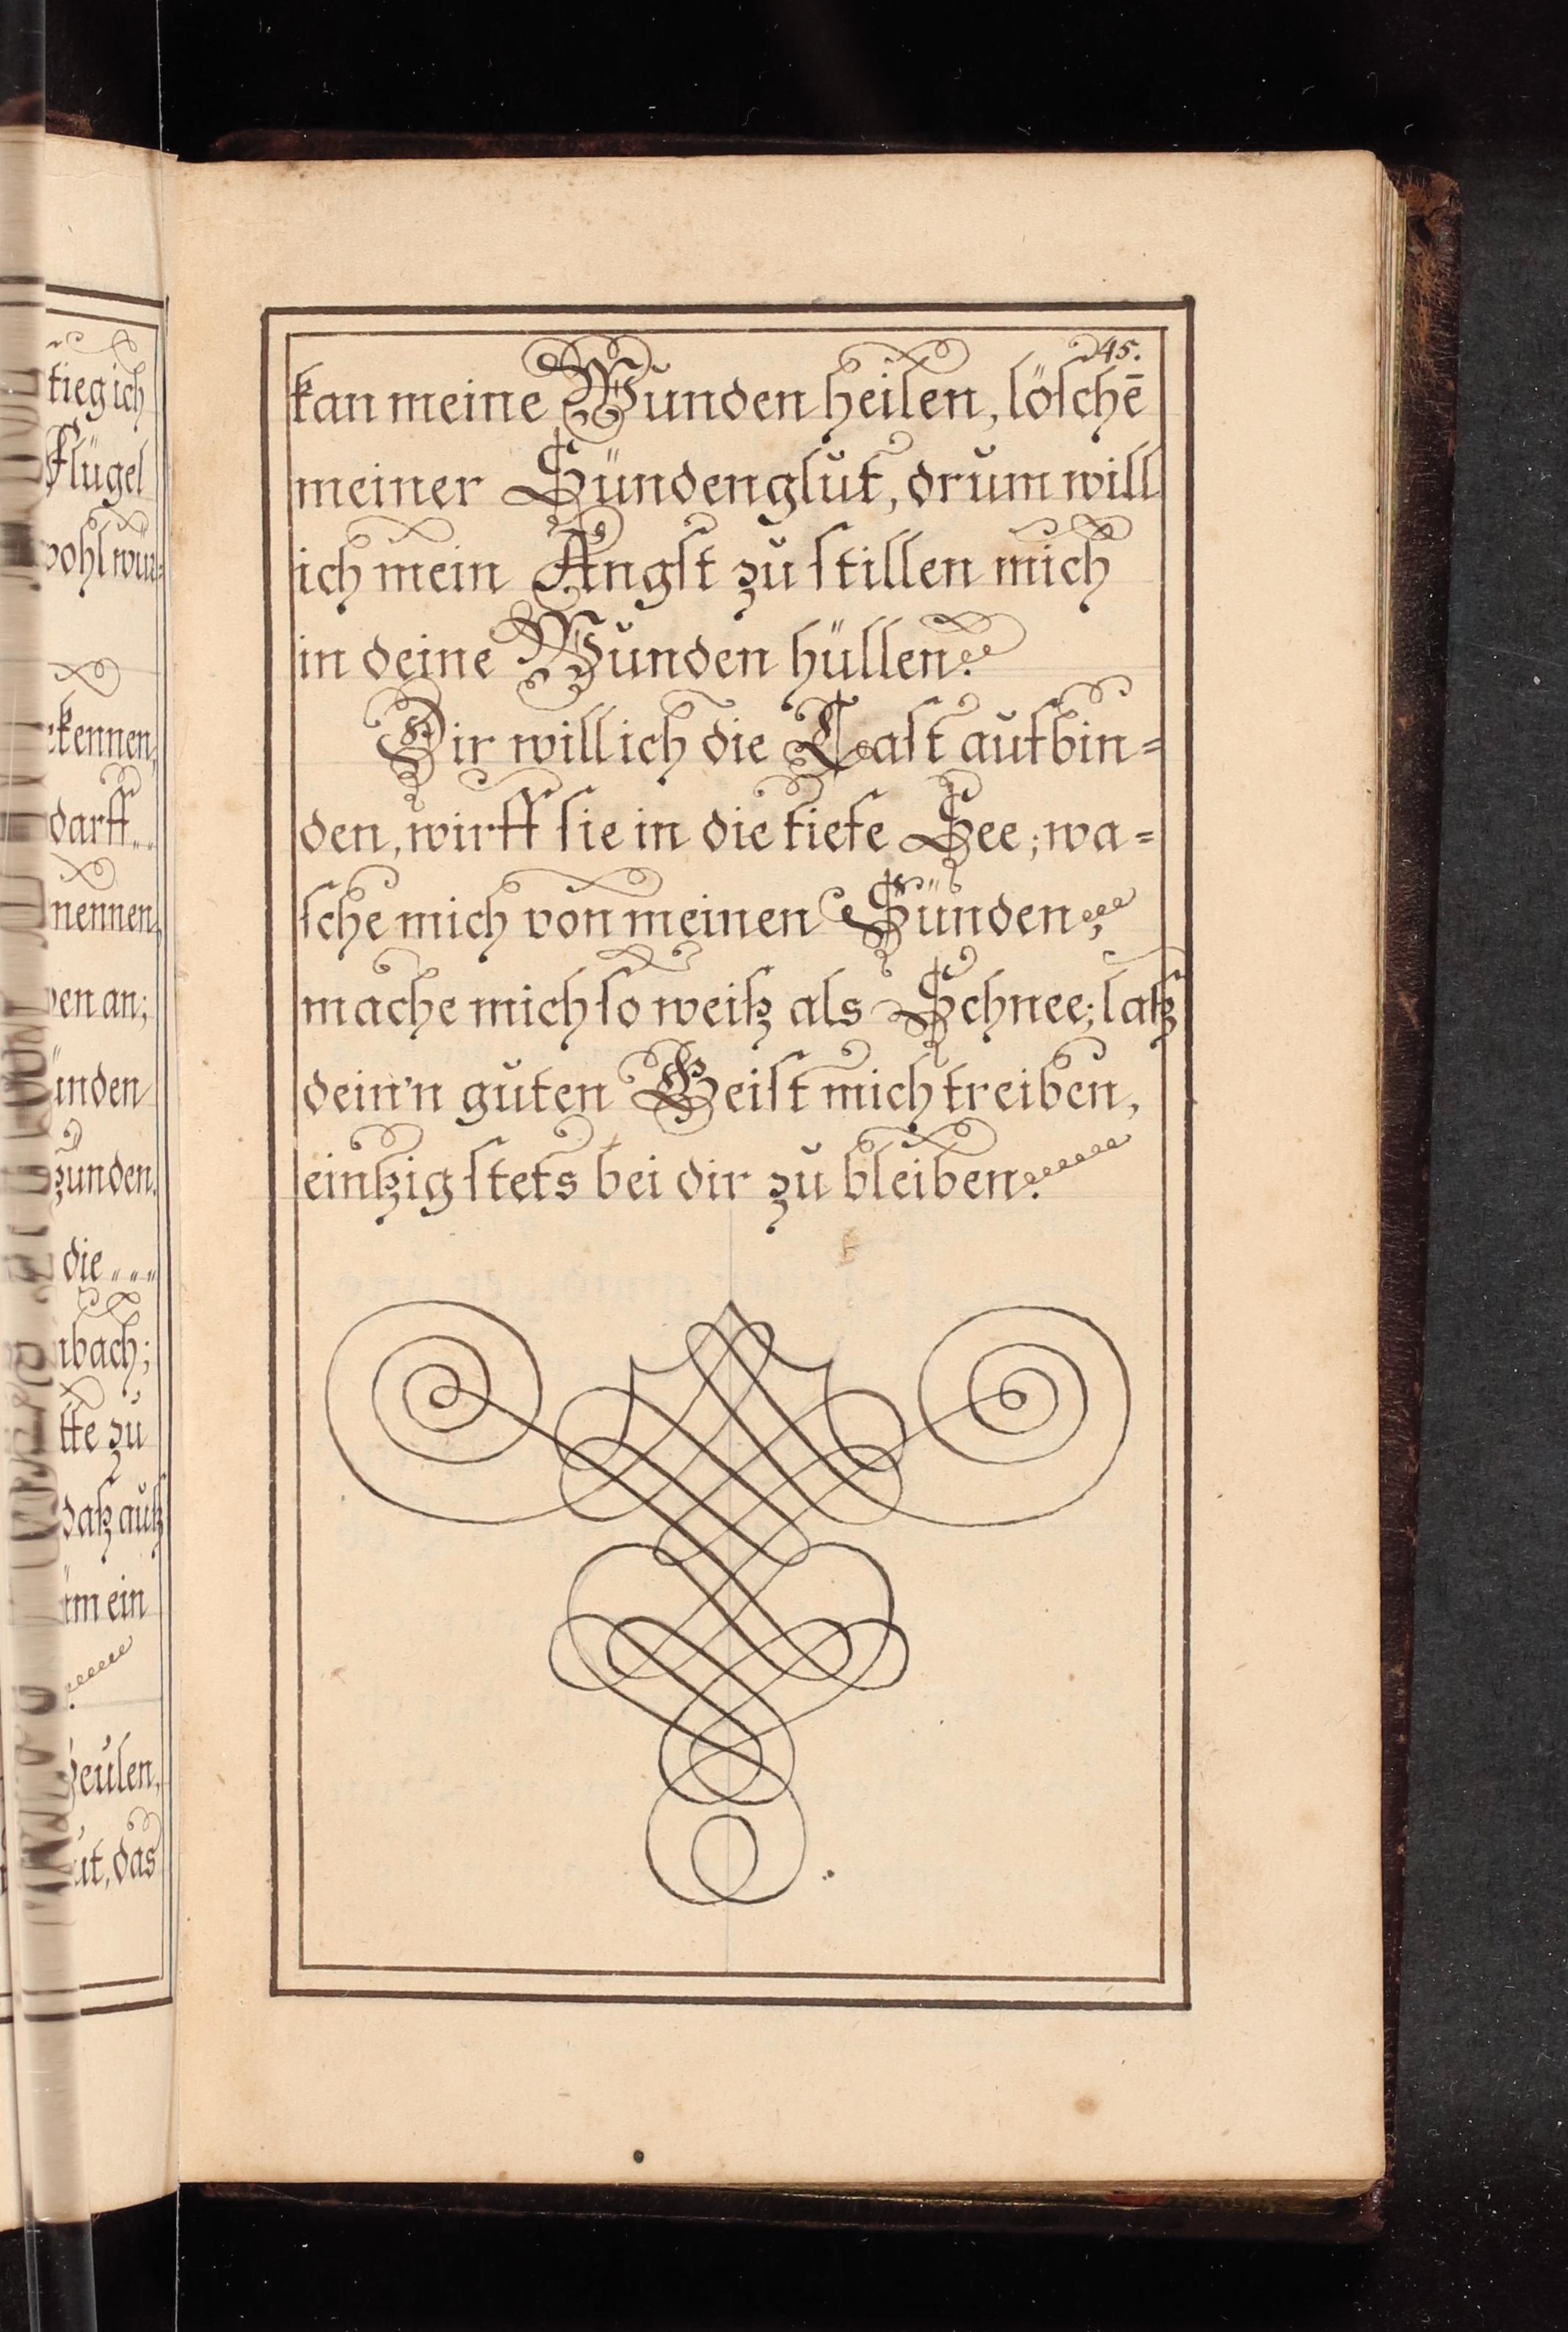 tieg ich
Flügel
wohl wün=
kennen,
darff
nennen,
en an;
ünden
zünden.
die
bach;
tte zu
daß auß
üm ein
heulen,
ut, das
45.
kan meine Wunden heilen, löschē
meiner Sündenglut, drum will
ich mein Angst zu stillen mich
in deine Wunden hüllen.
Dir will ich die Last aufbin=
den, wirff sie in die tiefe See; wa=
sche mich von meinen Sünden;
mache mich so weiß als Schnee; laß
dein'n guten Geist mich treiben,
eintzig stets bei dir zu bleiben.